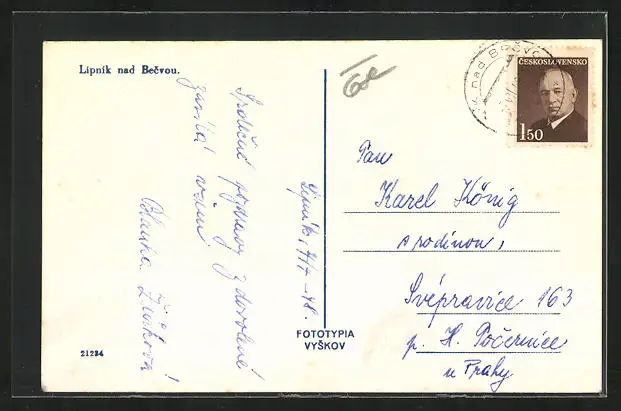 Lipník nad Bečvou.
Srdečné pozdravy z dovolené
zasílá vám
Blanka
Lipník, 17/7-48.
60c
nad BEČVO
ČESKOSLOVENSKO
1 50
Pan
Karel König
s rodinou,
Svépravice 163
p. H. Počernice
u Prahy
FOTOTYPIA
VYŠKOV
21234